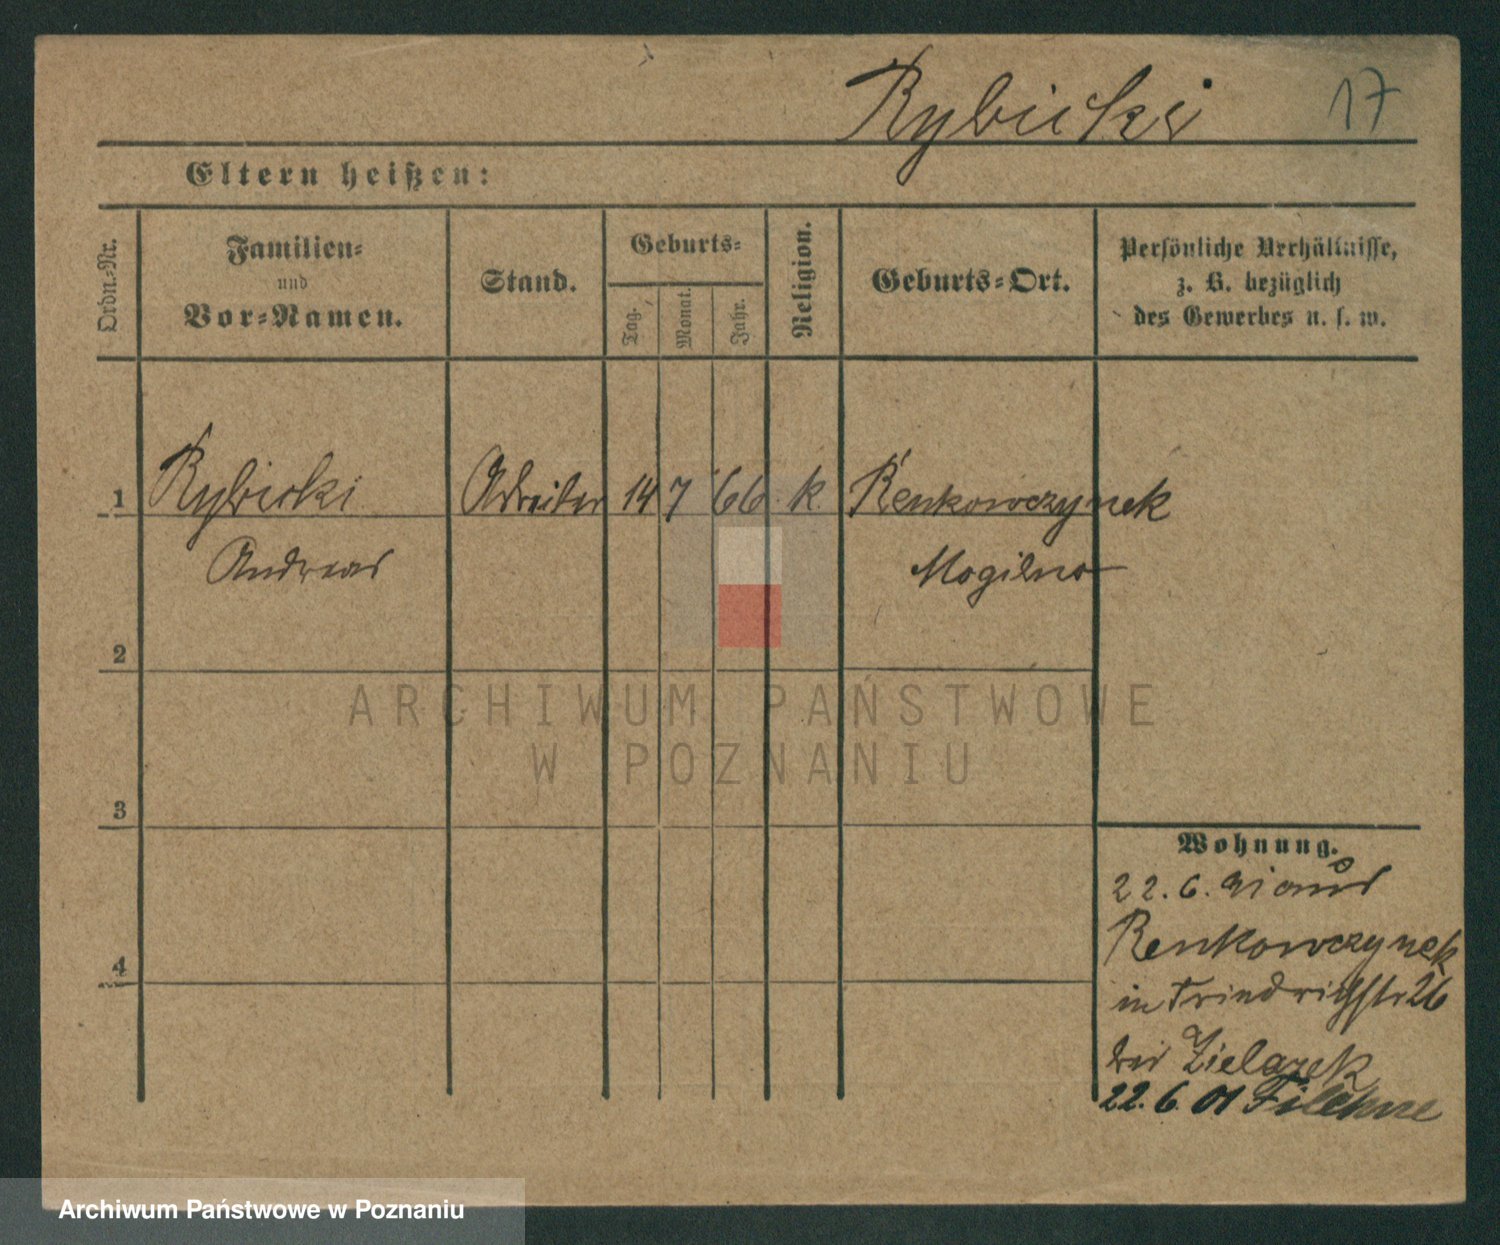 Rybicki 17
Eltern heißen:
Ordn.-Nr.
Familien-
und
Vor-Namen.
Stand.
Geburts-
Tag.
Monat.
Jahr.
Religion.
Geburts-Ort.
Persönliche Verhältnisse,
z. B. bezüglich
des Gewerbes u. s. w.
1 Rybicki Arbeiter 14 7 66 k. Renkowczynek
Andreas Mogilno
2
ARCHIWUM PAŃSTWOWE
W POZNANIU
3
Wohnung.
22. 6. aus
Renkowczynek
4
in Friedrichstr 26
bei Zielazek
22. 6. 01 Filehne
Archiwum Państwowe w Poznaniu